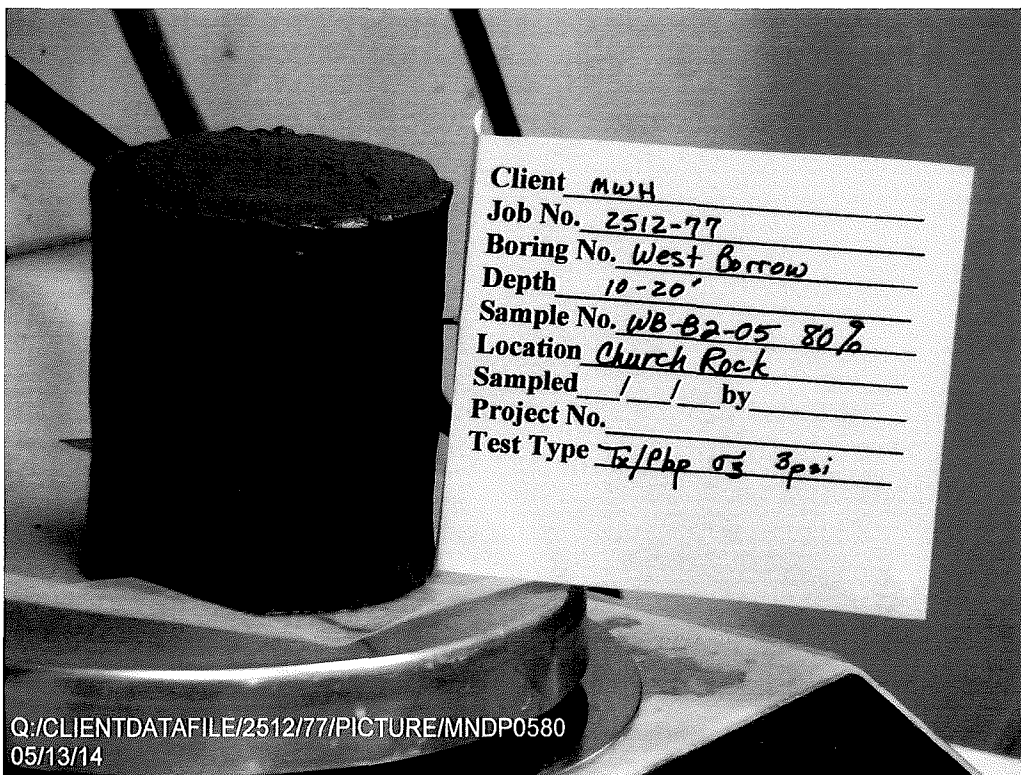 Client MWH
Job No. 2512-77
Boring No. West Borrow
Depth 10-20'
Sample No. WB-B2-05 80%
Location Church Rock
Sampled __/__/__ by
Project No.
Test Type Tx/Pbp σ3 3psi
Q:/CLIENTDATAFILE/2512/77/PICTURE/MNDP0580
05/13/14